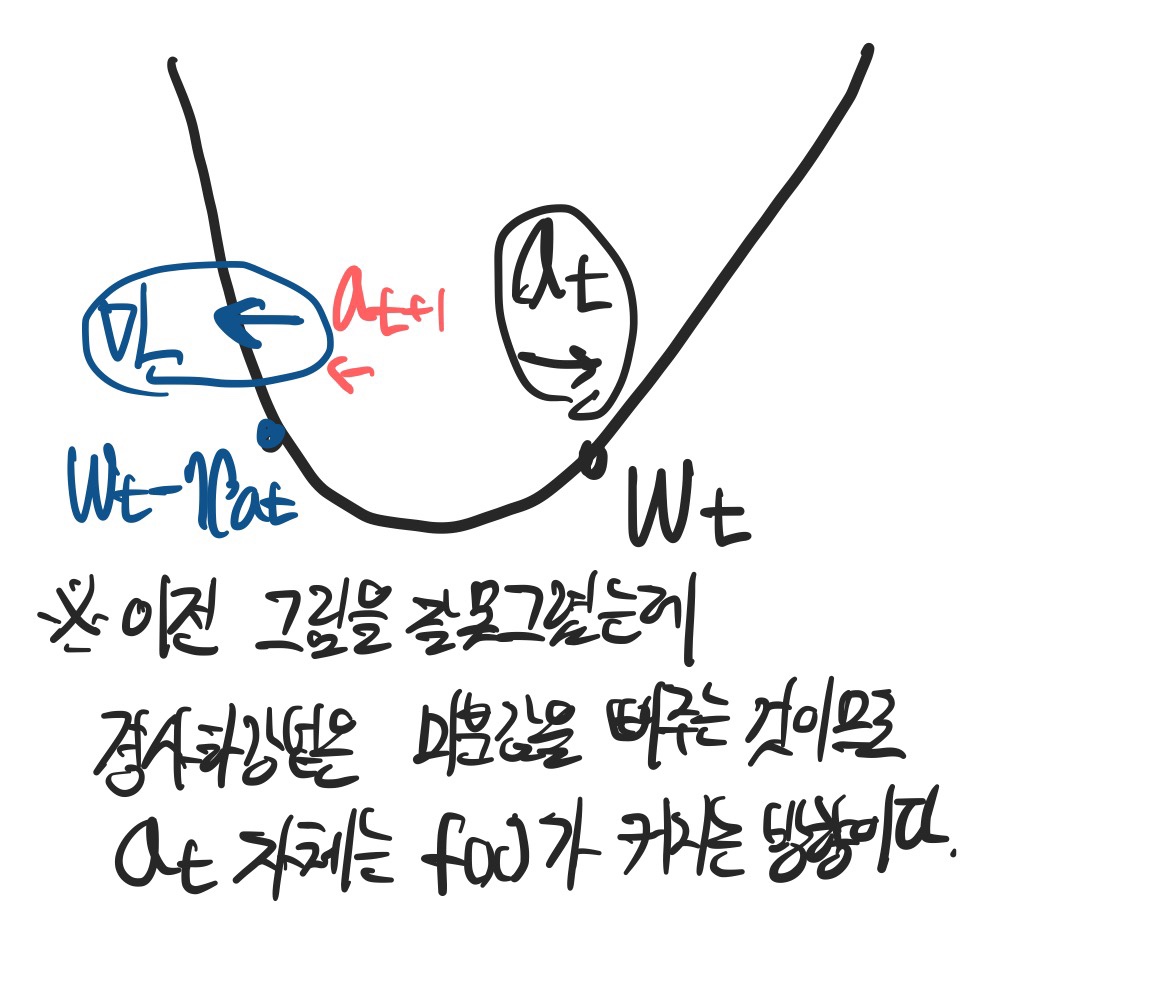 a_t
∇L
a_{t+1}
W_t-ηa_t
W_t
※ 이전 그림을 잘못그렸는데
경사하강법은 미분값을 빼주는 것이므로
a_t 자체는 f(x)가 커지는 방향이다.